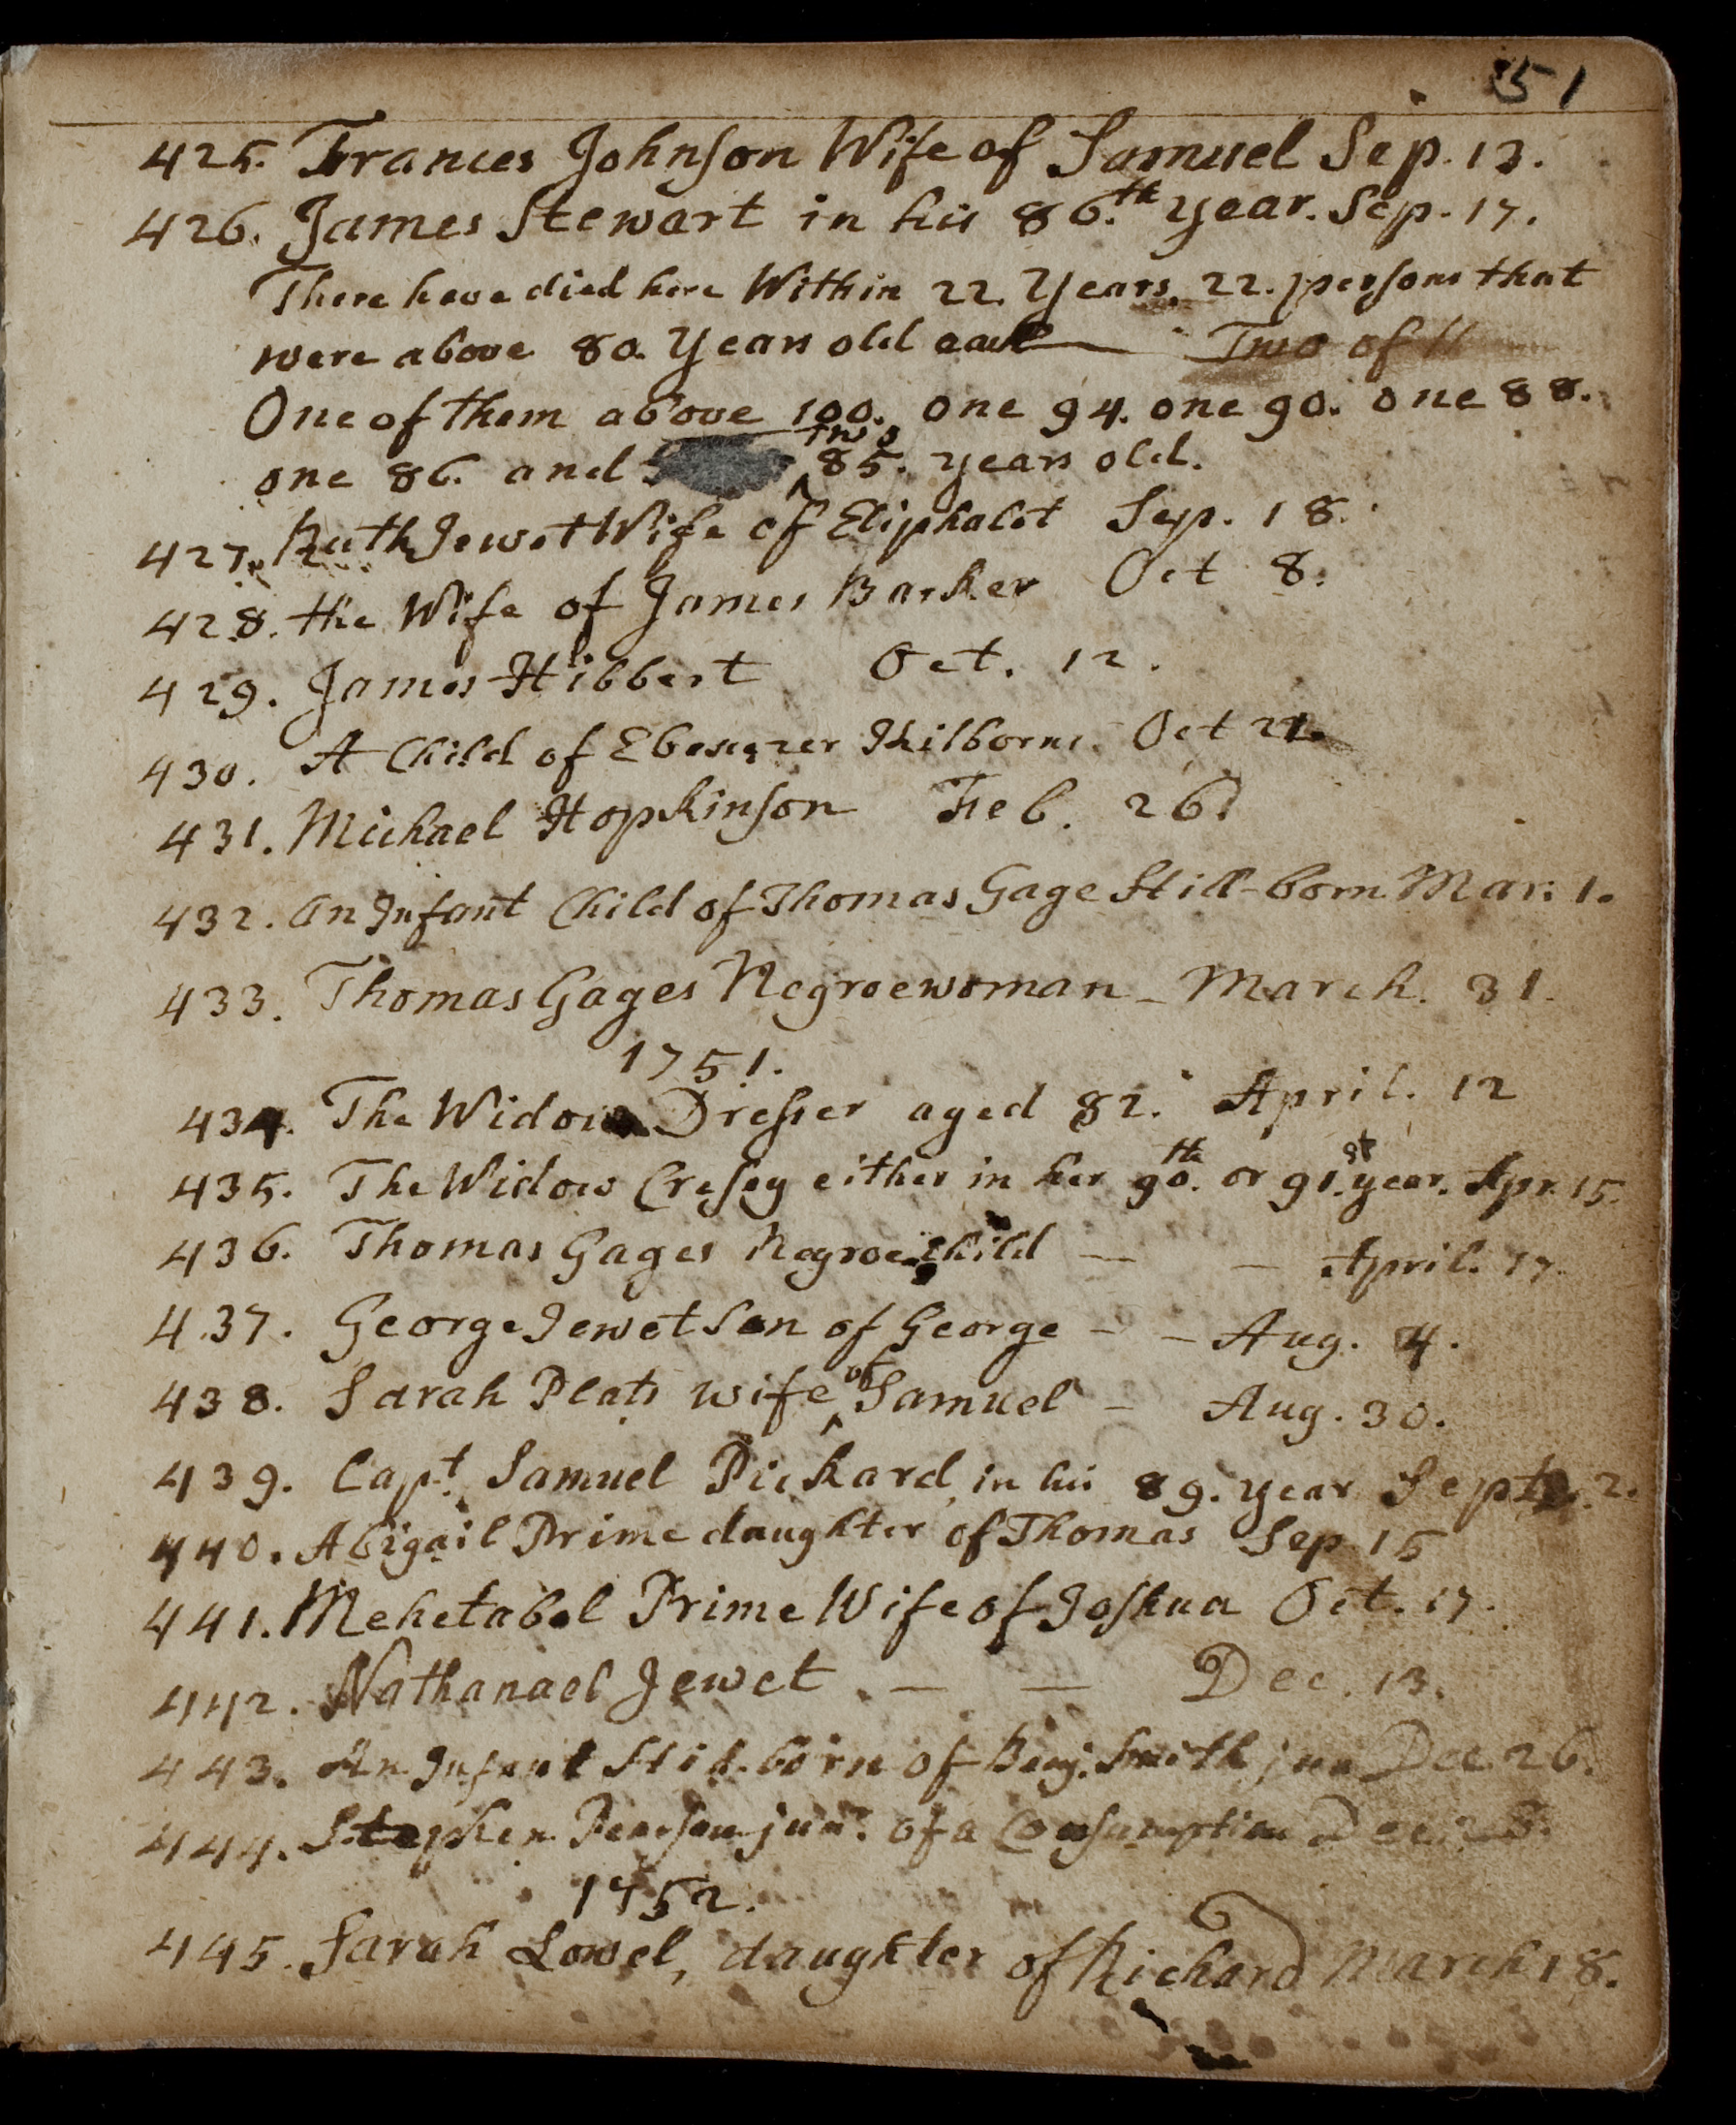 51
425. Frances Johnson Wife of Samuel Sep. 13.
426. James Stewart in his 86.th year. Sep. 17.
There have died here Within 22. Years, 22. persons that
were above 80. Years old each Two of
One of them above 100. one 94. one 90. one 88.
one 86. and two 85. years old.
427. Ruth Jewet Wife of Eliphalet Sep. 18.
428. the Wife of James Barker Oct 8.
429. James Hibbert Oct. 12.
430. A Child of Ebenezer Kilborns. Oct 21.
431. Michael Hopkinson Feb. 26.
432. An Infant Child of Thomas Gage Still-born Mar. 1.
433. Thomas Gages Negroewoman - March. 31.
1751.
434. The Widow Dresser aged 82. April. 12
435. The Widow Cresey either in her 90.th or 91.st year. Apr. 15.
436. Thomas Gages Negroe child — — April. 17.
437. George Jewet Son of George - - Aug. 4.
438. Sarah Plats wife of Samuel - Aug. 30.
439. Capt. Samuel Pickard, in his 89. year Sept. 2.
440. Abigail Prime daughter of Thomas Sep 15
441. Mehetabel Prime Wife of Joshua Oct. 17.
442. Nathanael Jewet — — Dec. 13.
443. An Infant Still-born of Benj. Smith jun Dec. 26.
444. Stephen Pearson junr. of a Consumption Dec.
1752.
445. Sarah Lowel, daughter of Richard March 18.